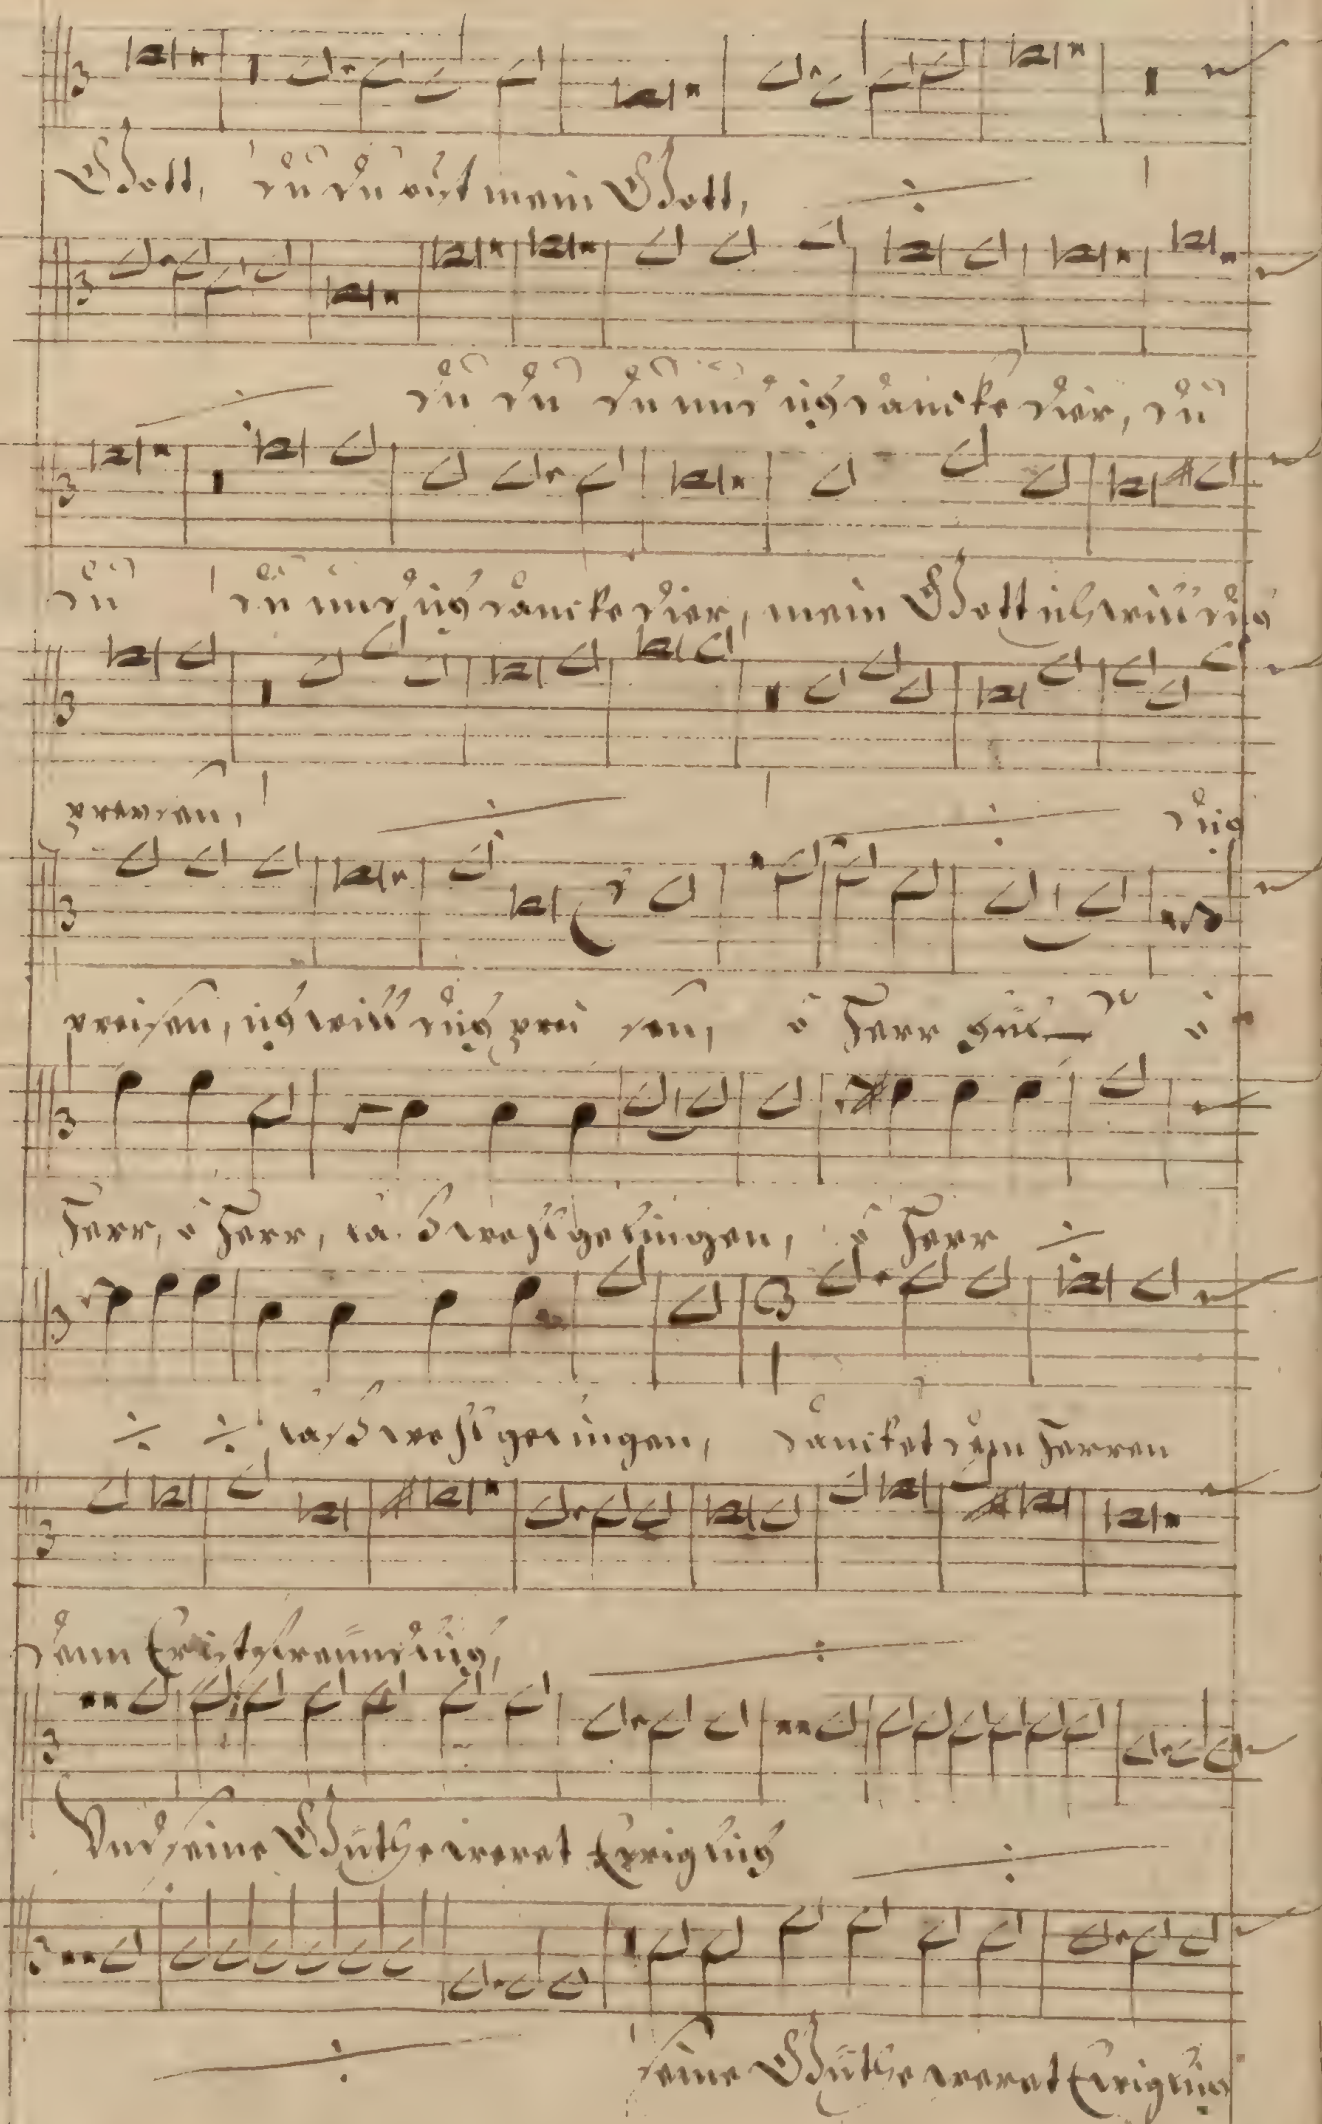 Gott, du du bist mein Gott, ÷
÷ du du du und ich dancke dier, du
du du und ich dancke dier, mein Gott ich will dich
preisen, ÷ ÷ dich
preisen, ich will dich prei sen, o Herr hilf o
Herr, o Herr, laß wohl gelingen, o Herr ÷
÷ ÷ laß wohl gelingen, dancket dem Herren
denn Er ist freundlich, ÷
Und seine Güthe weret Ewiglich ÷
÷ seine Güthe weret Ewiglich